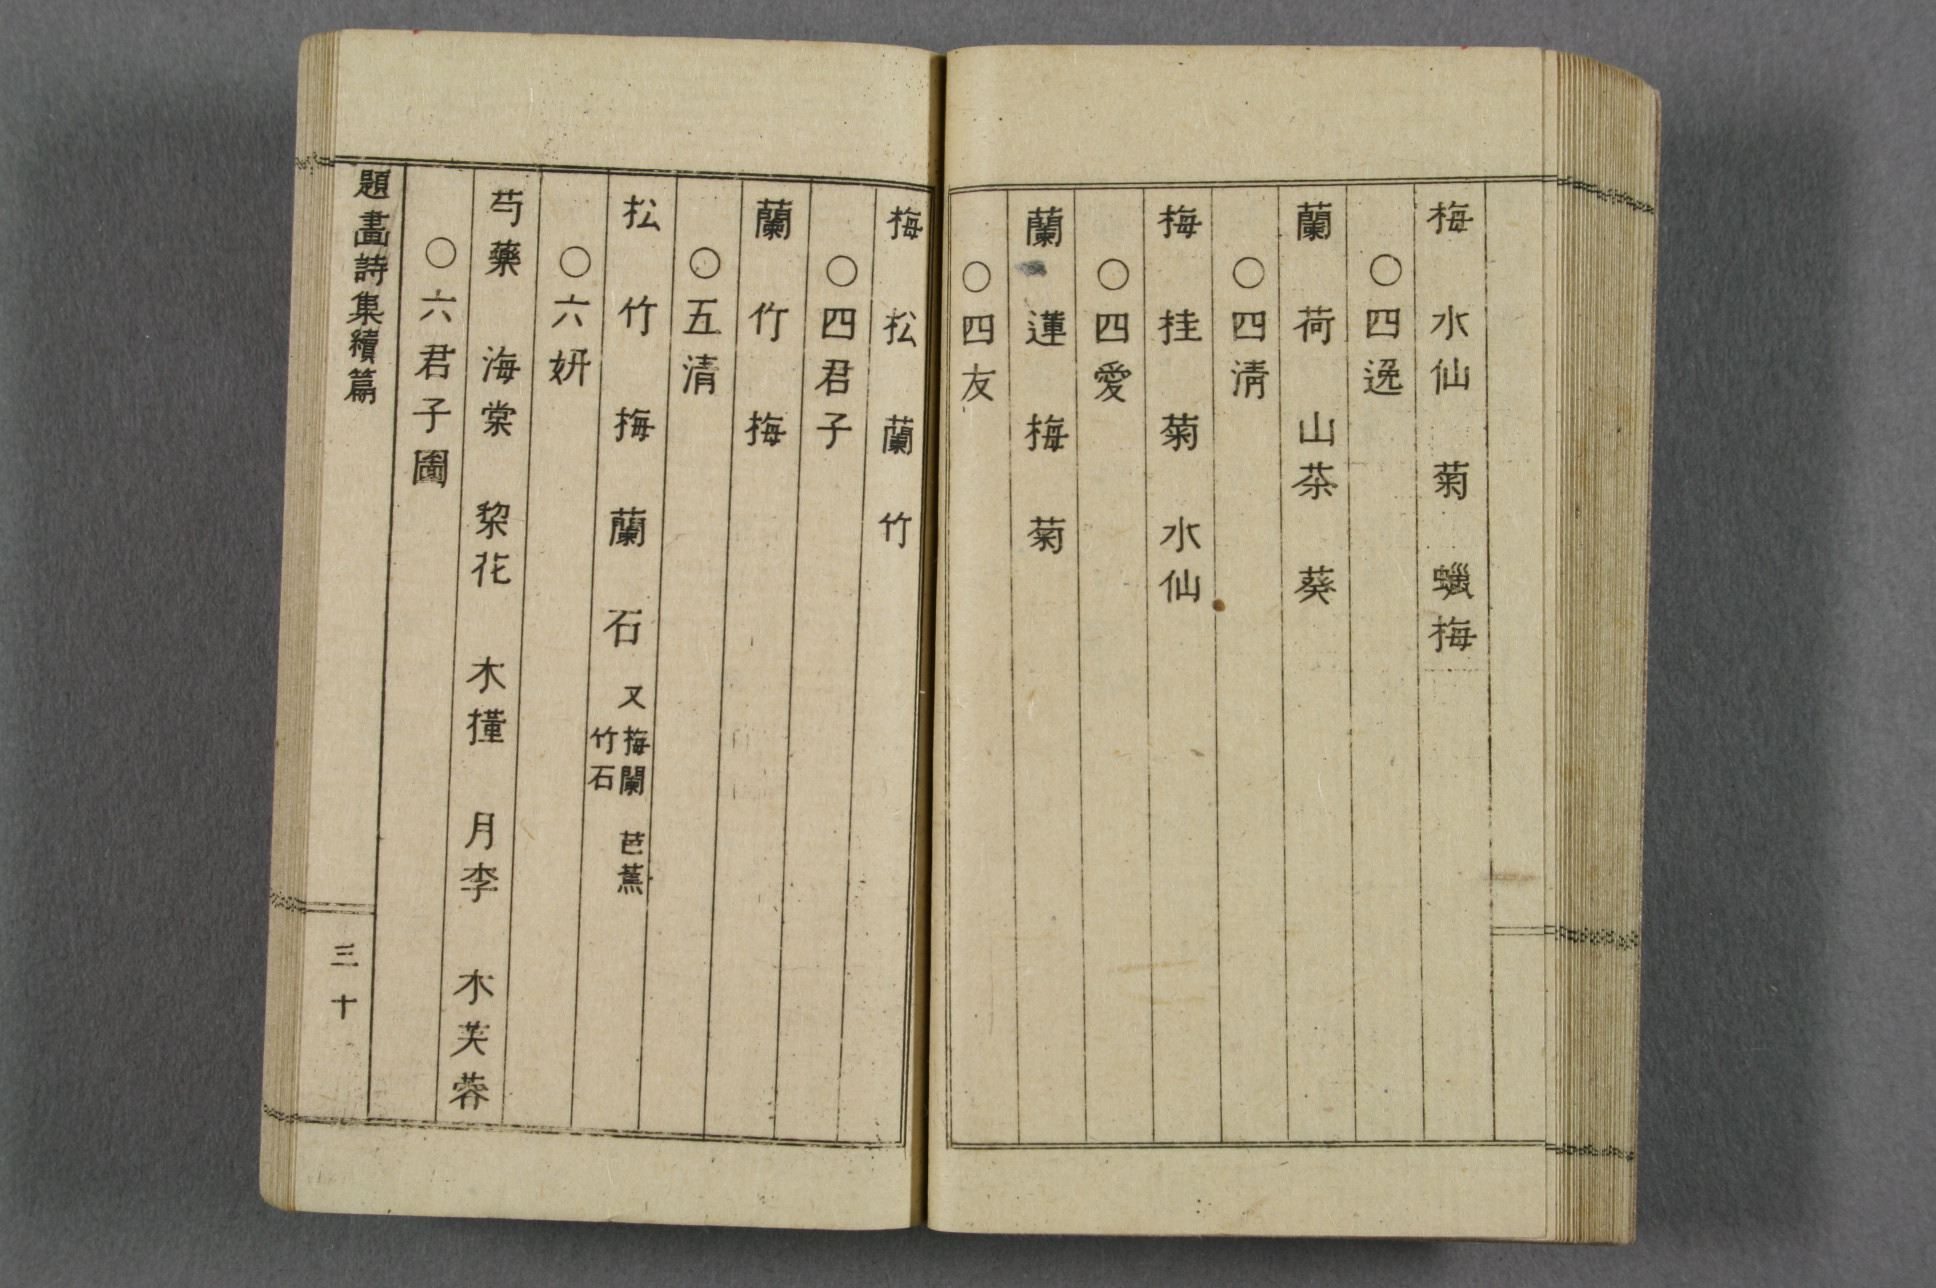 梅　水仙　菊　蠟梅
○四逸
蘭　荷　山茶　葵
○四清
梅　桂　菊　水仙
○四愛
蘭　蓮　梅　菊
○四友
梅　松　蘭　竹
○四君子
蘭　竹　梅
○五清
松　竹　梅　蘭　石　又梅蘭　芭蕉
竹石
○六妍
芍藥　海棠　棃花　木槿　月季　木芙蓉
○六君子圖
題畫詩集續篇
三十